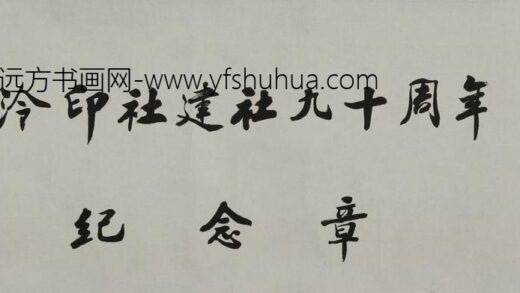 远方书画网-www.yfshuhua.com
泠印社建社九十周年
纪念章